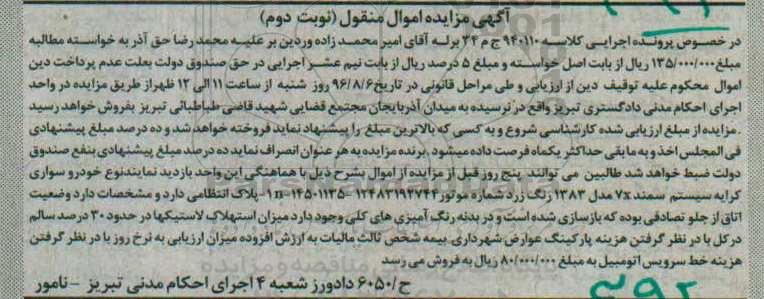 آگهی مزایده اموال منقول (نوبت دوم)
در خصوص پرونده اجرایی کلاسه ۹۴۰۱۱۰ ج م ۳۴ برله آقای امیر محمد زاده وردین بر علیه محمد رضا حق آذر به خواسته مطالبه
مبلغ ۱۳۵/۰۰۰/۰۰۰ ریال از بابت اصل خواسته و مبلغ ۵ درصد ریال از بابت نیم عشر اجرایی در حق صندوق دولت بعلت عدم پرداخت دین
اموال محکوم علیه توقیف دین از ارزیابی و طی مراحل قانونی در تاریخ ۹۶/۸/۶ روز شنبه از ساعت ۱۱ الی ۱۲ ظهر از طریق مزایده در واحد
اجرای احکام مدنی دادگستری تبریز واقع در نرسیده به میدان آذربایجان مجتمع قضایی شهید قاضی طباطبائی تبریز بفروش خواهد رسید
.مزایده از مبلغ ارزیابی شده کارشناسی شروع و به کسی که بالاترین مبلغ را پیشنهاد نماید فروخته خواهد شد و ده درصد مبلغ پیشنهادی
فی المجلس اخذ و به مابقی حداکثر یکماه فرصت داده میشود .برنده مزایده به هر عنوان انصراف نماید ده درصد مبلغ پیشنهادی بنفع صندوق
دولت ضبط خواهد شد طالبین می توانند پنج روز قبل از مزایده از اموال بشرح ذیل با هماهنگی این واحد بازدید نمایند نوع خودرو سواری
کرایه سیستم سمند ۷x مدل ۱۳۸۳ رنگ زرد شماره موتور ۱۲۴۸۳۱۹۴۷۴۴ -۱۴۵۰۱۱۳۵ n ۱- پلاک انتظامی دارد و مشخصات دارد وضعیت
اتاق از جلو تصادفی بوده که بازسازی شده است و در بدنه رنگ آمیزی های کلی وجود دارد میزان استهلاک لاستیکها در حدود ۳۰ درصد سالم
در کل با در نظر گرفتن هزینه پارکینگ عوارض شهرداری. بیمه شخص ثالث مالیات به ارزش افزوده میزان ارزیابی به نرخ روز با در نظر گرفتن
هزینه خط سرویس اتومبیل به مبلغ ۸۰/۰۰۰/۰۰۰ ریال به فروش می رسد
ح/۶۰۵۰ دادورز شعبه ۴ اجرای احکام مدنی تبریز - نامور